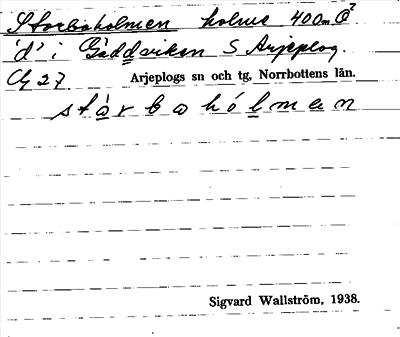 Storboholmen holme 400m Ö
'd' i Gäddviken S Arjeplog.
27. Arjeplogs sn och tg, Norrbottens län.
stàrbohólmen
Sigvard Wallström, 1938.